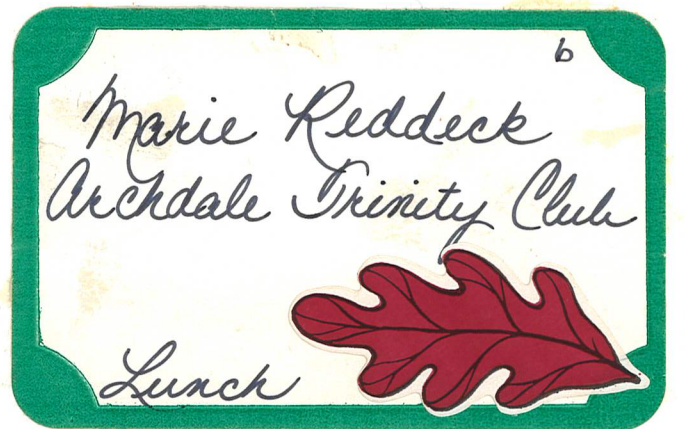 6
Marie Reddeck
Archdale Trinity Club
Lunch